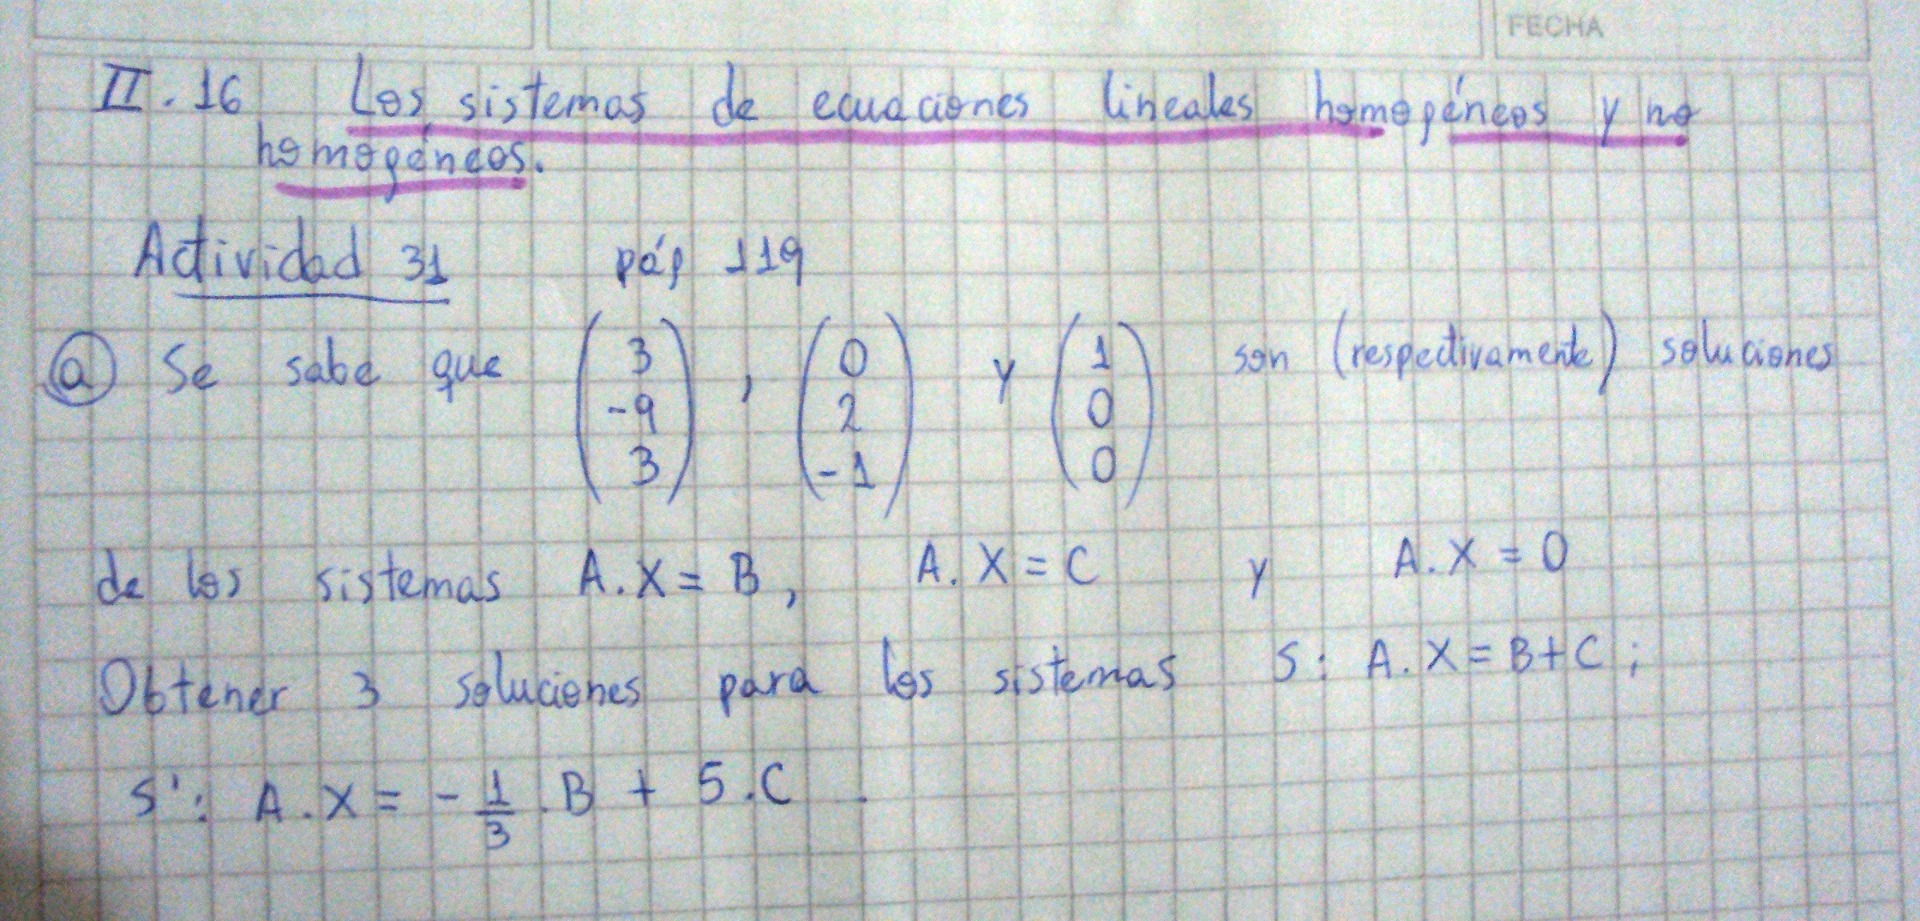 FECHA
II.16 Los sistemas de ecuaciones lineales homogéneos y no
homogéneos.
Actividad 31 pág 119
ⓐ Se sabe que (3 -9 3), (0 2 -1) y (1 0 0) son (respectivamente) soluciones
de los sistemas A.X = B, A.X = C y A.X = 0
Obtener 3 soluciones para los sistemas S: A.X = B+C;
S': A.X = - 1/3 .B + 5.C .